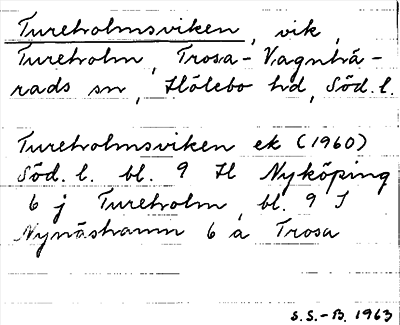 Tureholmsviken, vik,
Tureholm, Trosa-Vagnhä-
rads sn, Hölebo hd, Söd. l.
Tureholmsviken ek (1960)
Söd. l. bl. 9 H Nyköping
6 j Tureholm, bl. 9 I
Nynäshamn 6 a Trosa
S.S.-B. 1963